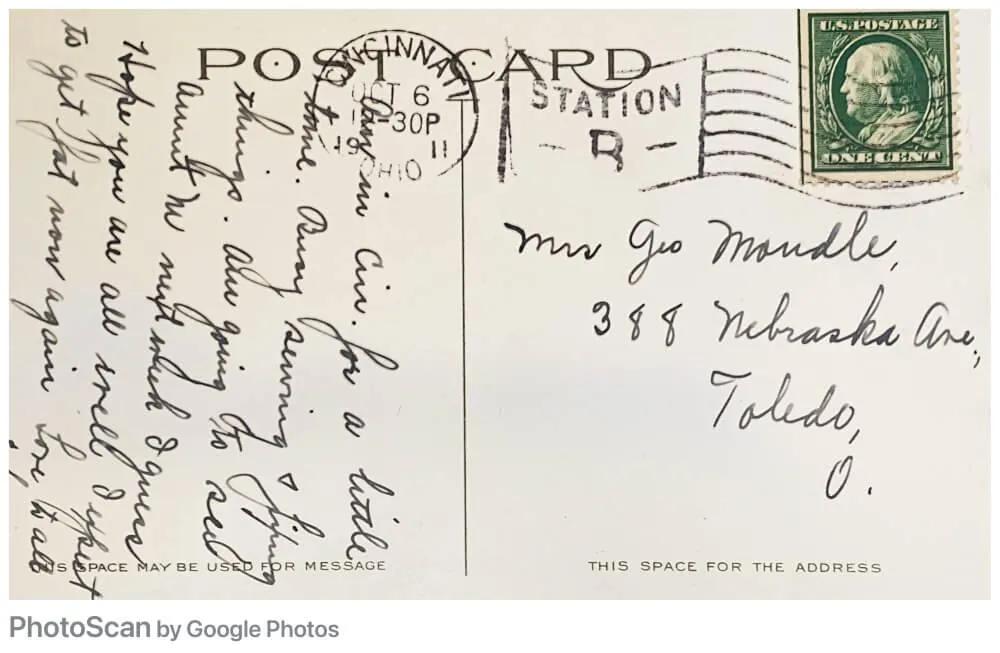 POST CARD
CINCINNATI
OCT 6
-30P
19 11
OHIO
STATION
U.S. POSTAGE
ONE CENT
Am in Cin. for a little
time. Busy sewing & fixing
things. Am going to see
Aunt M next week I guess
Hope you are all well I expect
to get fat now again Love, to all
Mrs Geo Mondle,
388 Nebraska Ave,
Toledo,
O.
THIS SPACE MAY BE USED FOR MESSAGE
THIS SPACE FOR THE ADDRESS
PhotoScan by Google Photos